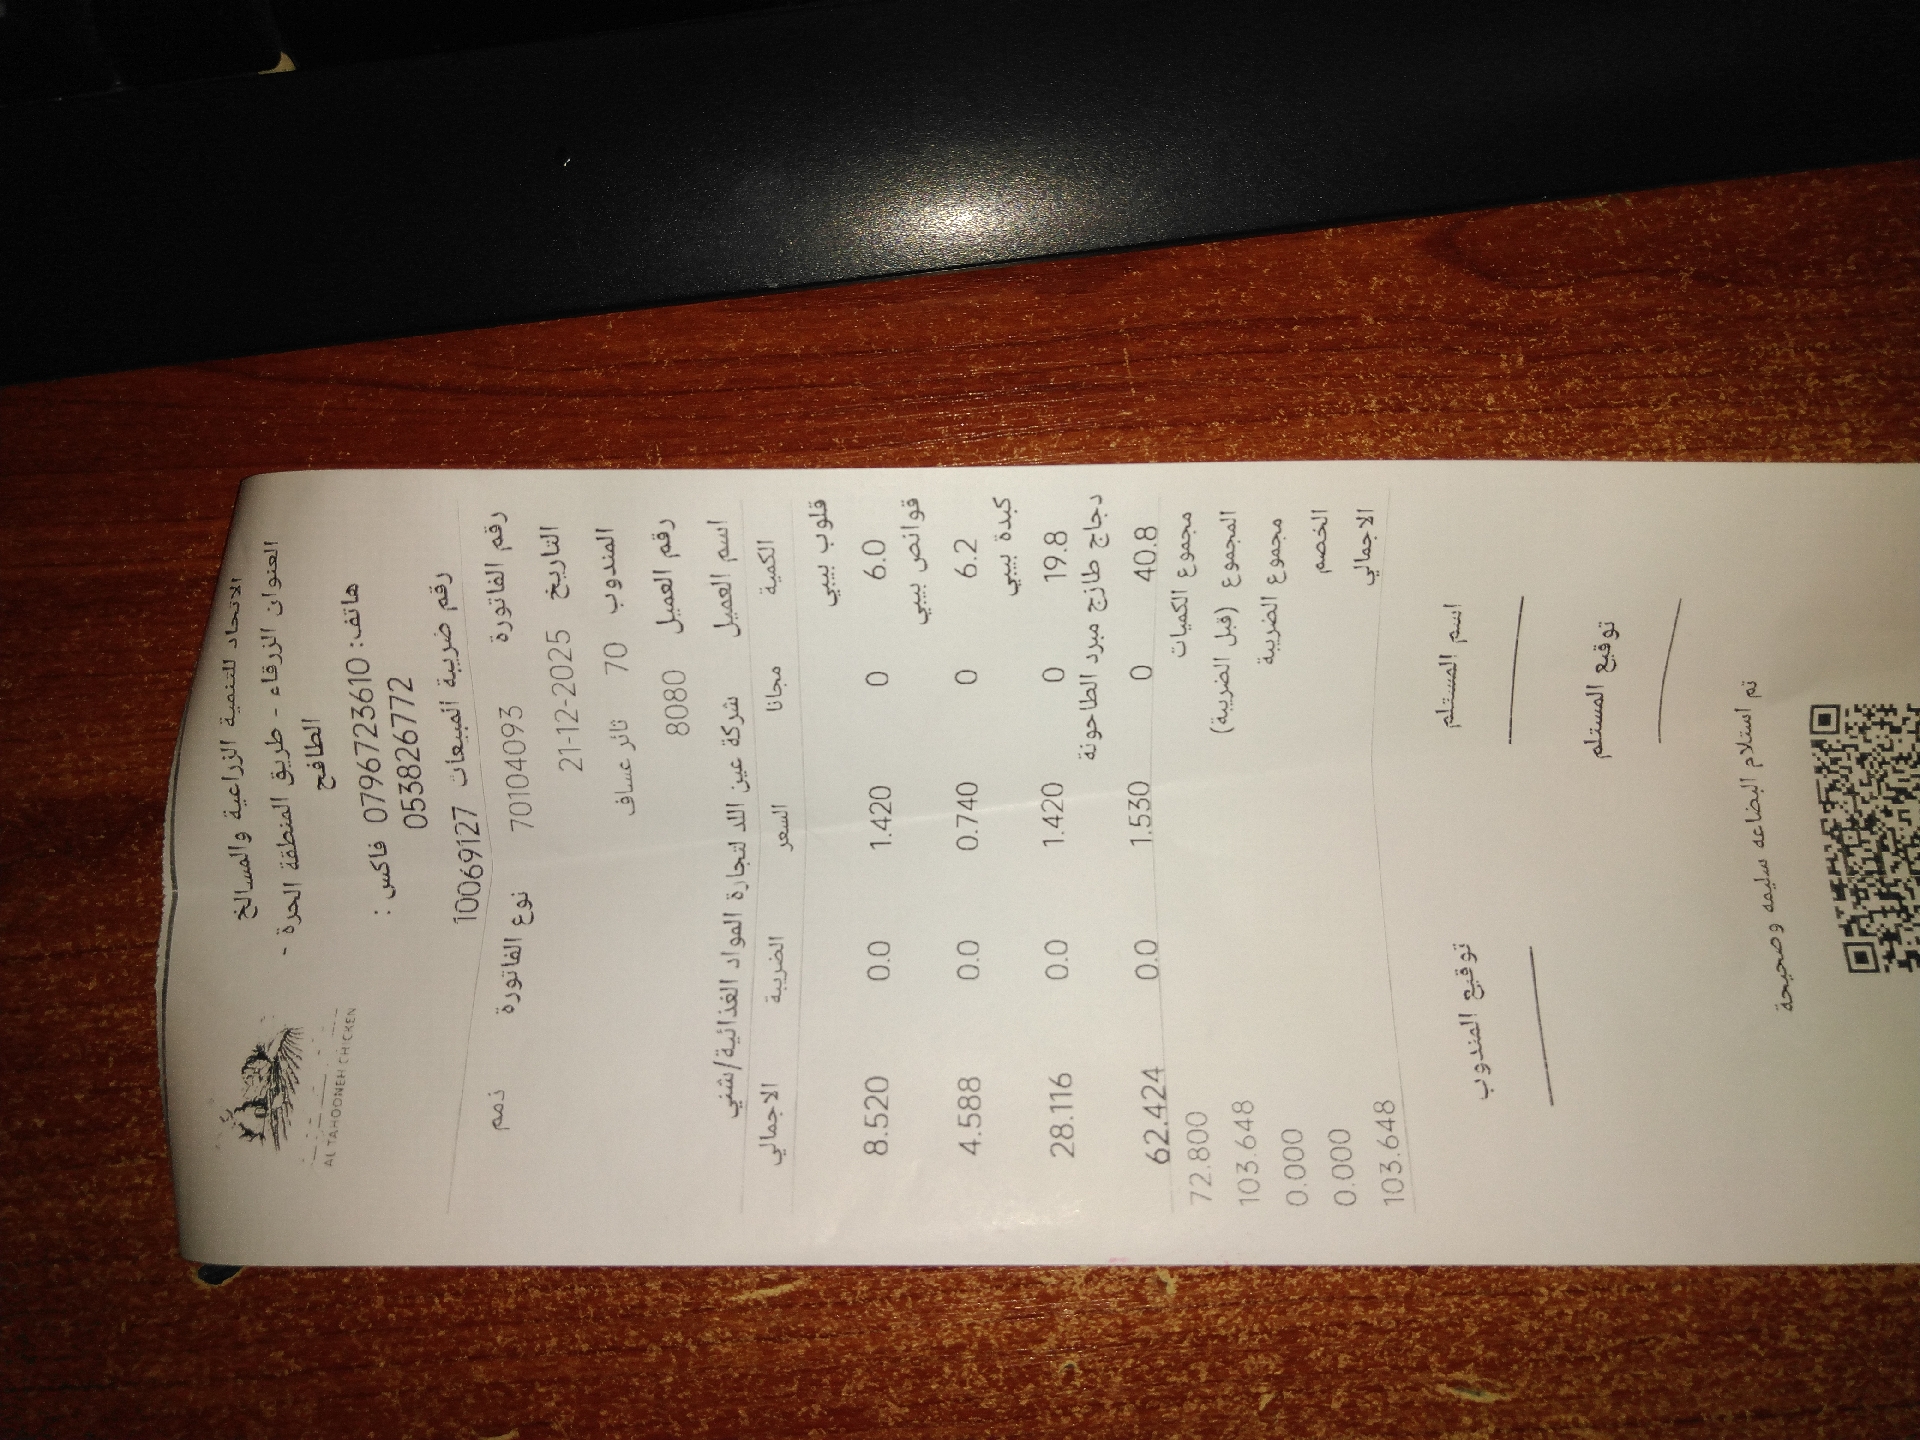 الاتحاد للتنمية الزراعية والمسالخ
العنوان الزرقاء - طريق المنطقة الحرة -
الطافح
هاتف: 0796723610 فاكس :
053826772
رقم ضريبة المبيعات 10069127
AL TAHOONEH CHICKEN
رقم الفاتورة 70104093 نوع الفاتورة ذمم
التاريخ 21-12-2025
المندوب 70 ثائر عساف
رقم العميل 8080
اسم العميل شركة عين اللد لتجارة المواد الغذائية/شني
الكمية مجانا السعر الضريبة الاجمالي
قلوب بيبي
6.0 0 1.420 0.0 8.520
قوانص بيبي
6.2 0 0.740 0.0 4.588
كبدة بيبي
19.8 0 1.420 0.0 28.116
دجاج طازج مبرد الطاحونة
40.8 0 1.530 0.0 62.424
مجموع الكميات 72.800
المجموع (قبل الضريبة) 103.648
مجموع الضريبة 0.000
الخصم 0.000
الاجمالي 103.648
اسم المستلم توقيع المندوب
توقيع المستلم
تم استلام البضاعه سليمه وصحيحة